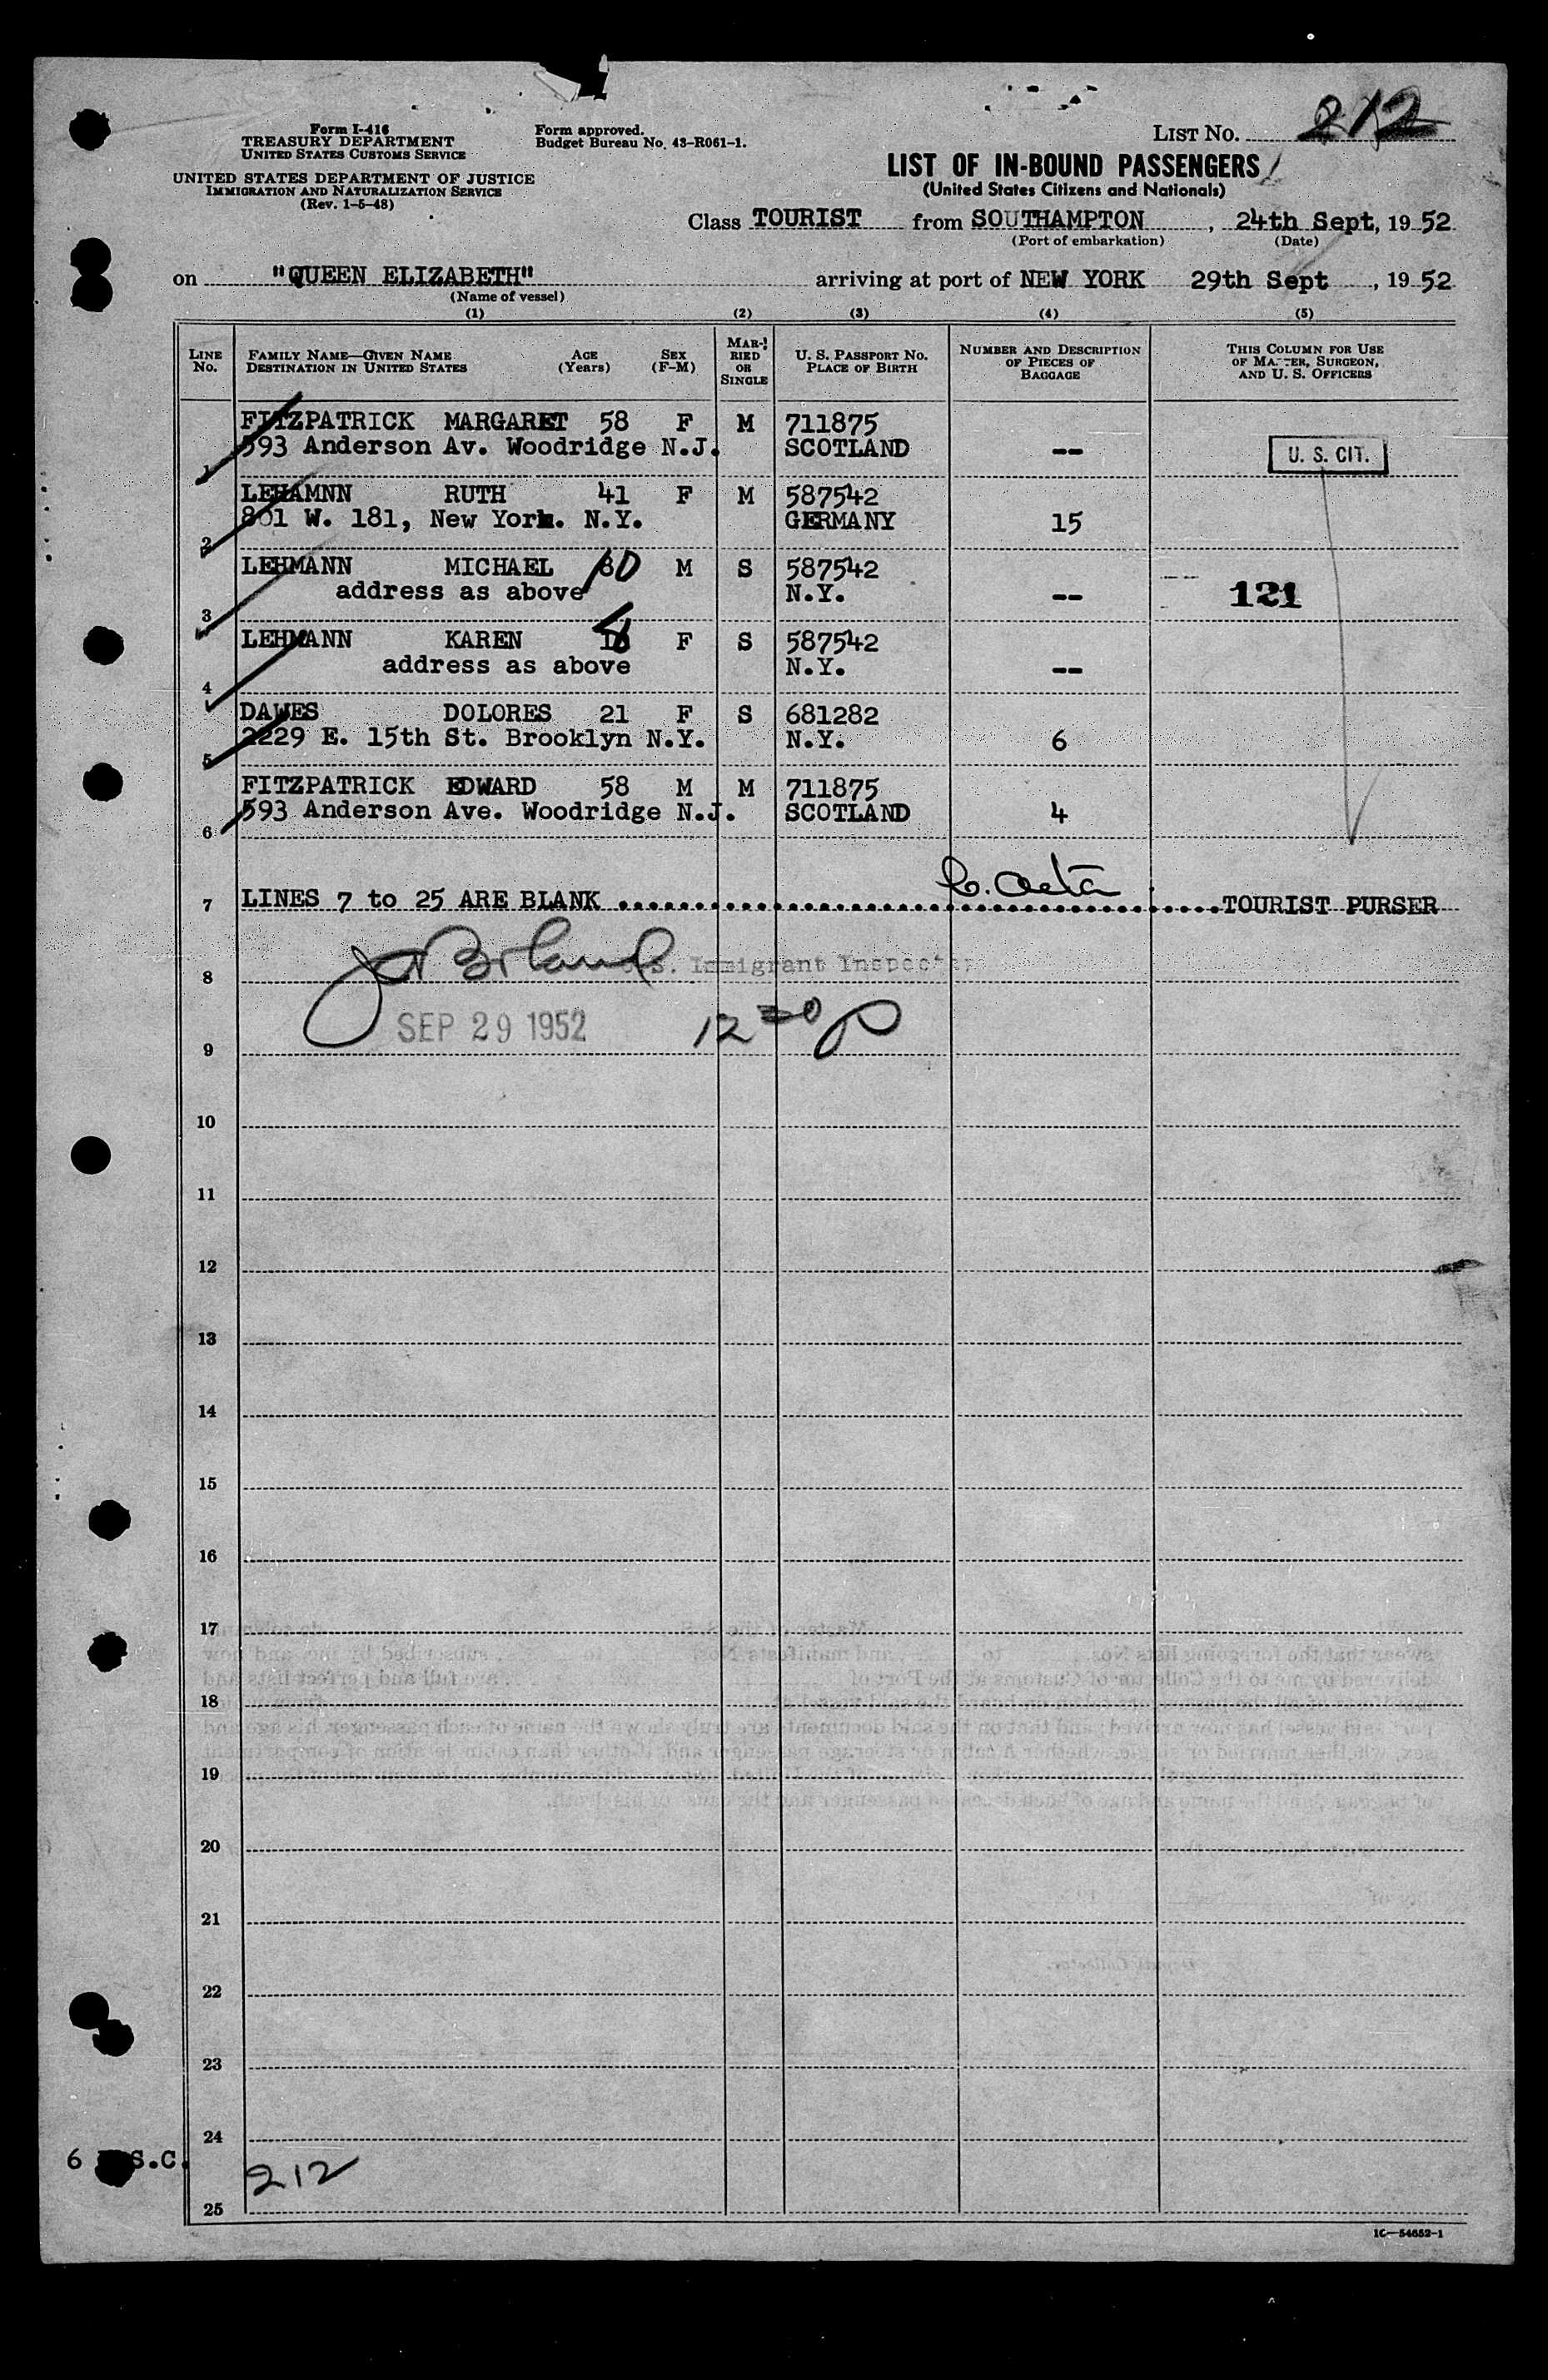 Form I-416
TREASURY DEPARTMENT
UNITED STATES CUSTOMS SERVICE
UNITED STATES DEPARTMENT OF JUSTICE
IMMIGRATION AND NATURALIZATION SERVICE
(Rev. 1-5-48)
Form approved.
Budget Bureau No. 43-R061-1.
LIST NO. 212
LIST OF IN-BOUND PASSENGERS
(United States Citizens and Nationals)
Class TOURIST from SOUTHAMPTON, 24th Sept, 19 52
(Port of embarkation) (Date)
on "QUEEN ELIZABETH" arriving at port of NEW YORK 29th Sept, 19 52
(Name of vessel)
(1) (2) (3) (4) (5)
LINE No. FAMILY NAME—GIVEN NAME DESTINATION IN UNITED STATES AGE (Years) SEX (F-M) MARRIED OR SINGLE U. S. PASSPORT NO. PLACE OF BIRTH NUMBER AND DESCRIPTION OF PIECES OF BAGGAGE THIS COLUMN FOR USE OF MASTER, SURGEON, AND U. S. OFFICERS
FITZPATRICK MARGARET 58 F M 711875
1 593 Anderson Av. Woodridge N.J. SCOTLAND -- U. S. CIT.
LEHAMNN RUTH 41 F M 587542
2 801 W. 181, New York. N.Y. GERMANY 15
LEHMANN MICHAEL 10 M S 587542
3 address as above N.Y. -- 121
LEHMANN KAREN F S 587542
4 address as above N.Y. --
DAWES DOLORES 21 F S 681282
5 2229 E. 15th St. Brooklyn N.Y. N.Y. 6
FITZPATRICK EDWARD 58 M M 711875
6 593 Anderson Ave. Woodridge N.J. SCOTLAND 4
7 LINES 7 to 25 ARE BLANK TOURIST PURSER
8 U.S. Immigrant Inspector
9 SEP 29 1952 12 30 p
10
11
12
13
14
15
16
17
18
19
20
21
22
23
24
6 S.C. 212
25
16—54652-1